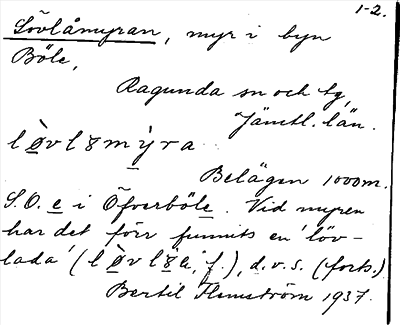 1-2.
Lövlåmyran, myr i byn
Böle,
Ragunda sn och tg,
Jämtl. län.
lø̱vlȣmỳ̱ra
Belägen 1000 m.
S.O. e i Öfverböle. Vid myren
har det förr funnits en 'löv-
lada' (lø̱vlȣ̱, f.), d.v.s. (forts.)
Bertil Flemström 1937.